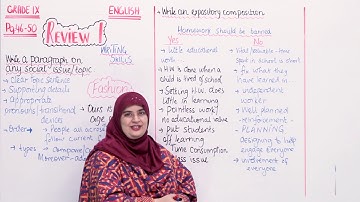 GRADE IX
ENGLISH
Pg 46-50
REVIEW 1
WRITING
SKILLS
Write a paragraph on
any social issue/topic
- Clear Topic Sentence
- Supporting details
- appropriate
pronouns/transitional
devices
- Order → People
follow current
→ types → compare
Moreover
Fashion
Ours is
→ Write an expository composition.
Homework should be banned
Yes
→ Little educational
work
→ H.W done when a
child is tired of school
→ Setting H.W. does
little in learning
→ Pointless work/
no educational value
→ Put students
off learning
Time Consumption
less issue
No
Vital
Spent in school is short
for what they
have learned in
→ independent
worker
→ Well planned
→ reinforcement
→ PLANNING
→ Designing to help
engage Everyone
→ involvement of
everyone